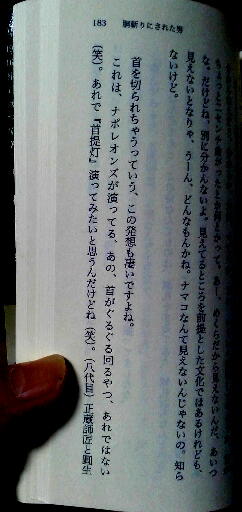 183　胴斬りにされた男
もうちょっと一センチ曲がったとか何かって。あー、めくらだから見えないんだ、あいつ
な。だけどね、別に分かんないよ。見えてるところを前提とした文化ではあるけれども、
見えないとなりゃ、うーん、どんなもんかね。ナマコなんて見えないんじゃないの。知ら
ないけど。
首を切られちゃうっていう、この発想も凄いですよね。
これは、ナポレオンズが演ってる、あの、首がぐるぐる回るやつ、あれではない
（笑）。あれで『首提灯』演ってみたいと思うんだけどね（笑）。（八代目）正蔵師匠と圓生